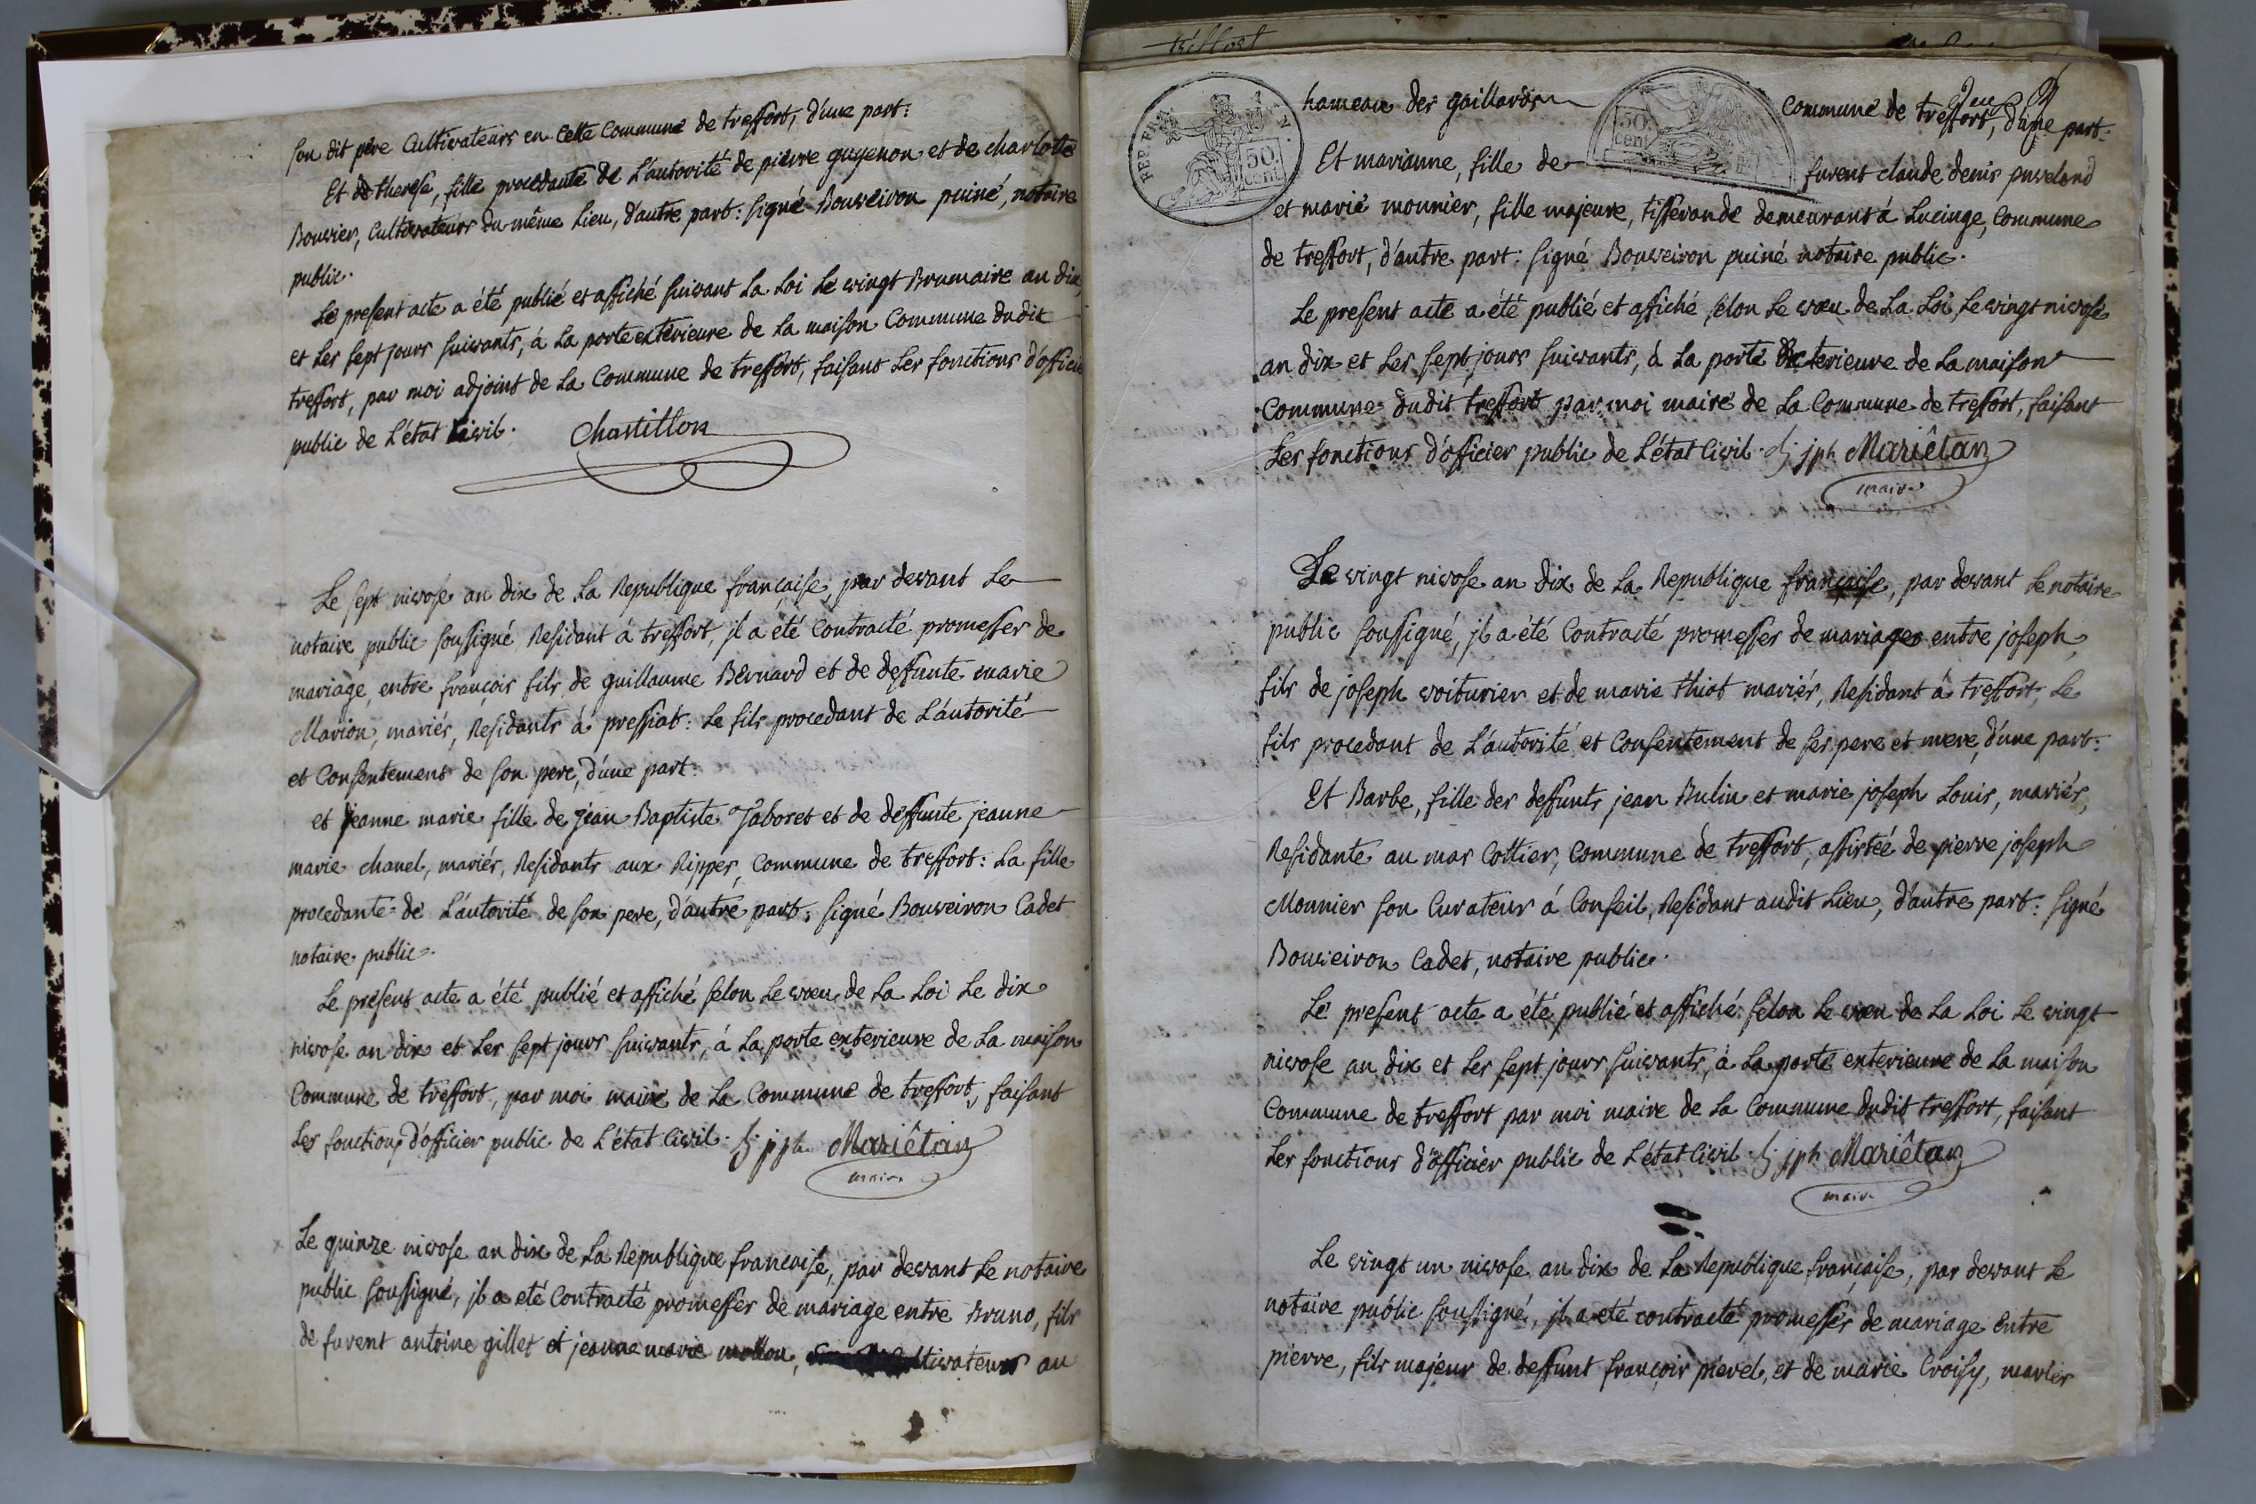 son dit père Cultivateurs en cette Commune de treffort, d'une part:
Et de therese, fille procedante de L'autorité de pierre guyenon et de charlotte
Bouvier, Cultivateurs du même Lieu, d'autre part: signé Bouveiron puiné, notaire
public.
Le present acte a été publié et affiché suivant La Loi Le vingt Brumaire an dix,
et Les sept jours suivants, à La porte exterieure de La maison Commune dudit
treffort, par moi adjoint de La Commune de treffort, faisant Les fonctions d'officier
public de L'état Civil. Chatillon
Le sept nivose an dix de La Republique française, par devant Le
notaire public soussigné Residant á treffort, il a été Contracté promesses de
mariage, entre françois fils de guillaume Bernard et de deffunte marie
Marion, mariés, Residants à pressiat: Le fils procedant de L'autorité
et Consentement de son pere, d'une part:
et jeanne marie fille de jean Baptiste Taboret et de deffunte jeanne
marie chanel, mariés, Residants aux Rippes, Commune de treffort: La fille
procedante de L'autorité de son pere, d'autre part; signé Bouveiron Cadet
notaire public.
Le présent acte a été publié et affiché selon Le vœu de La Loi Le dix
nivose an dix et Les sept jours suivants, á La porte exterieure de La maison
Commune de treffort, par moi maire de La Commune de treffort, faisant
Les fonctions d'officier public de L'état Civil. jph Mariêtan
maire
Le quinze nivose an dix de La Republique française, par devant Le notaire
public soussigné, il a eté Contracté promesses de mariage entre Bruno, fils
de furent antoine gillet et jeanne marie mollon, Cultivateurs au
treffort
hameau des gaillards Commune de treffort, d'une part:
Et marianne, fille de furent claude denis puveland
et marie mounier, fille majeure, tisserande demeurant á Lucinge, Commune
de treffort, d'autre part: signé Bouveiron puiné notaire public.
Le present acte a été publié et affiché selon Le vœu de La Loi, Le vingt nivose
an dix et Les sept jours suivants, à La porte Exterieure de La maison
Commune dudit treffort par moi maire de La Commune de treffort, faisant
Les fonctions d'officier public de L'état Civil. jph Mariêtan
maire
Le vingt nivose an dix de La Republique française, par devant Le notaire
public soussigné, il a été Contracté promesses de mariages entre joseph,
fils de joseph voiturier et de marie thiot mariés, Residant á treffort, Le
fils procedant de L'autorité et Consentement de ses pere et mere, d'une part:
Et Barbe, fille des deffunts jean Bulin et marie joseph Louis, mariés,
Residante au mas Cottier, Commune de treffort, assistée de pierre joseph
Mounier son Curateur á Conseil, Residant audit Lieu, d'autre part: signé
Bouveiron Cadet, notaire public.
Le present acte a été publié et affiché selon Le vœu de La Loi Le vingt
nivose an dix et Les sept jours suivants, à La porte exterieure de La maison
Commune de treffort par moi maire de La Commune dudit treffort, faisant
Les fonctions d'officier public de L'état Civil. jph Mariêtan
maire
Le vingt un nivose an dix de La Republique française, par devant Le
notaire public soussigné, il a eté contracté promesses de mariage entre
pierre, fils majeur de deffunt françois pievel, et de marie Croisy, mariés